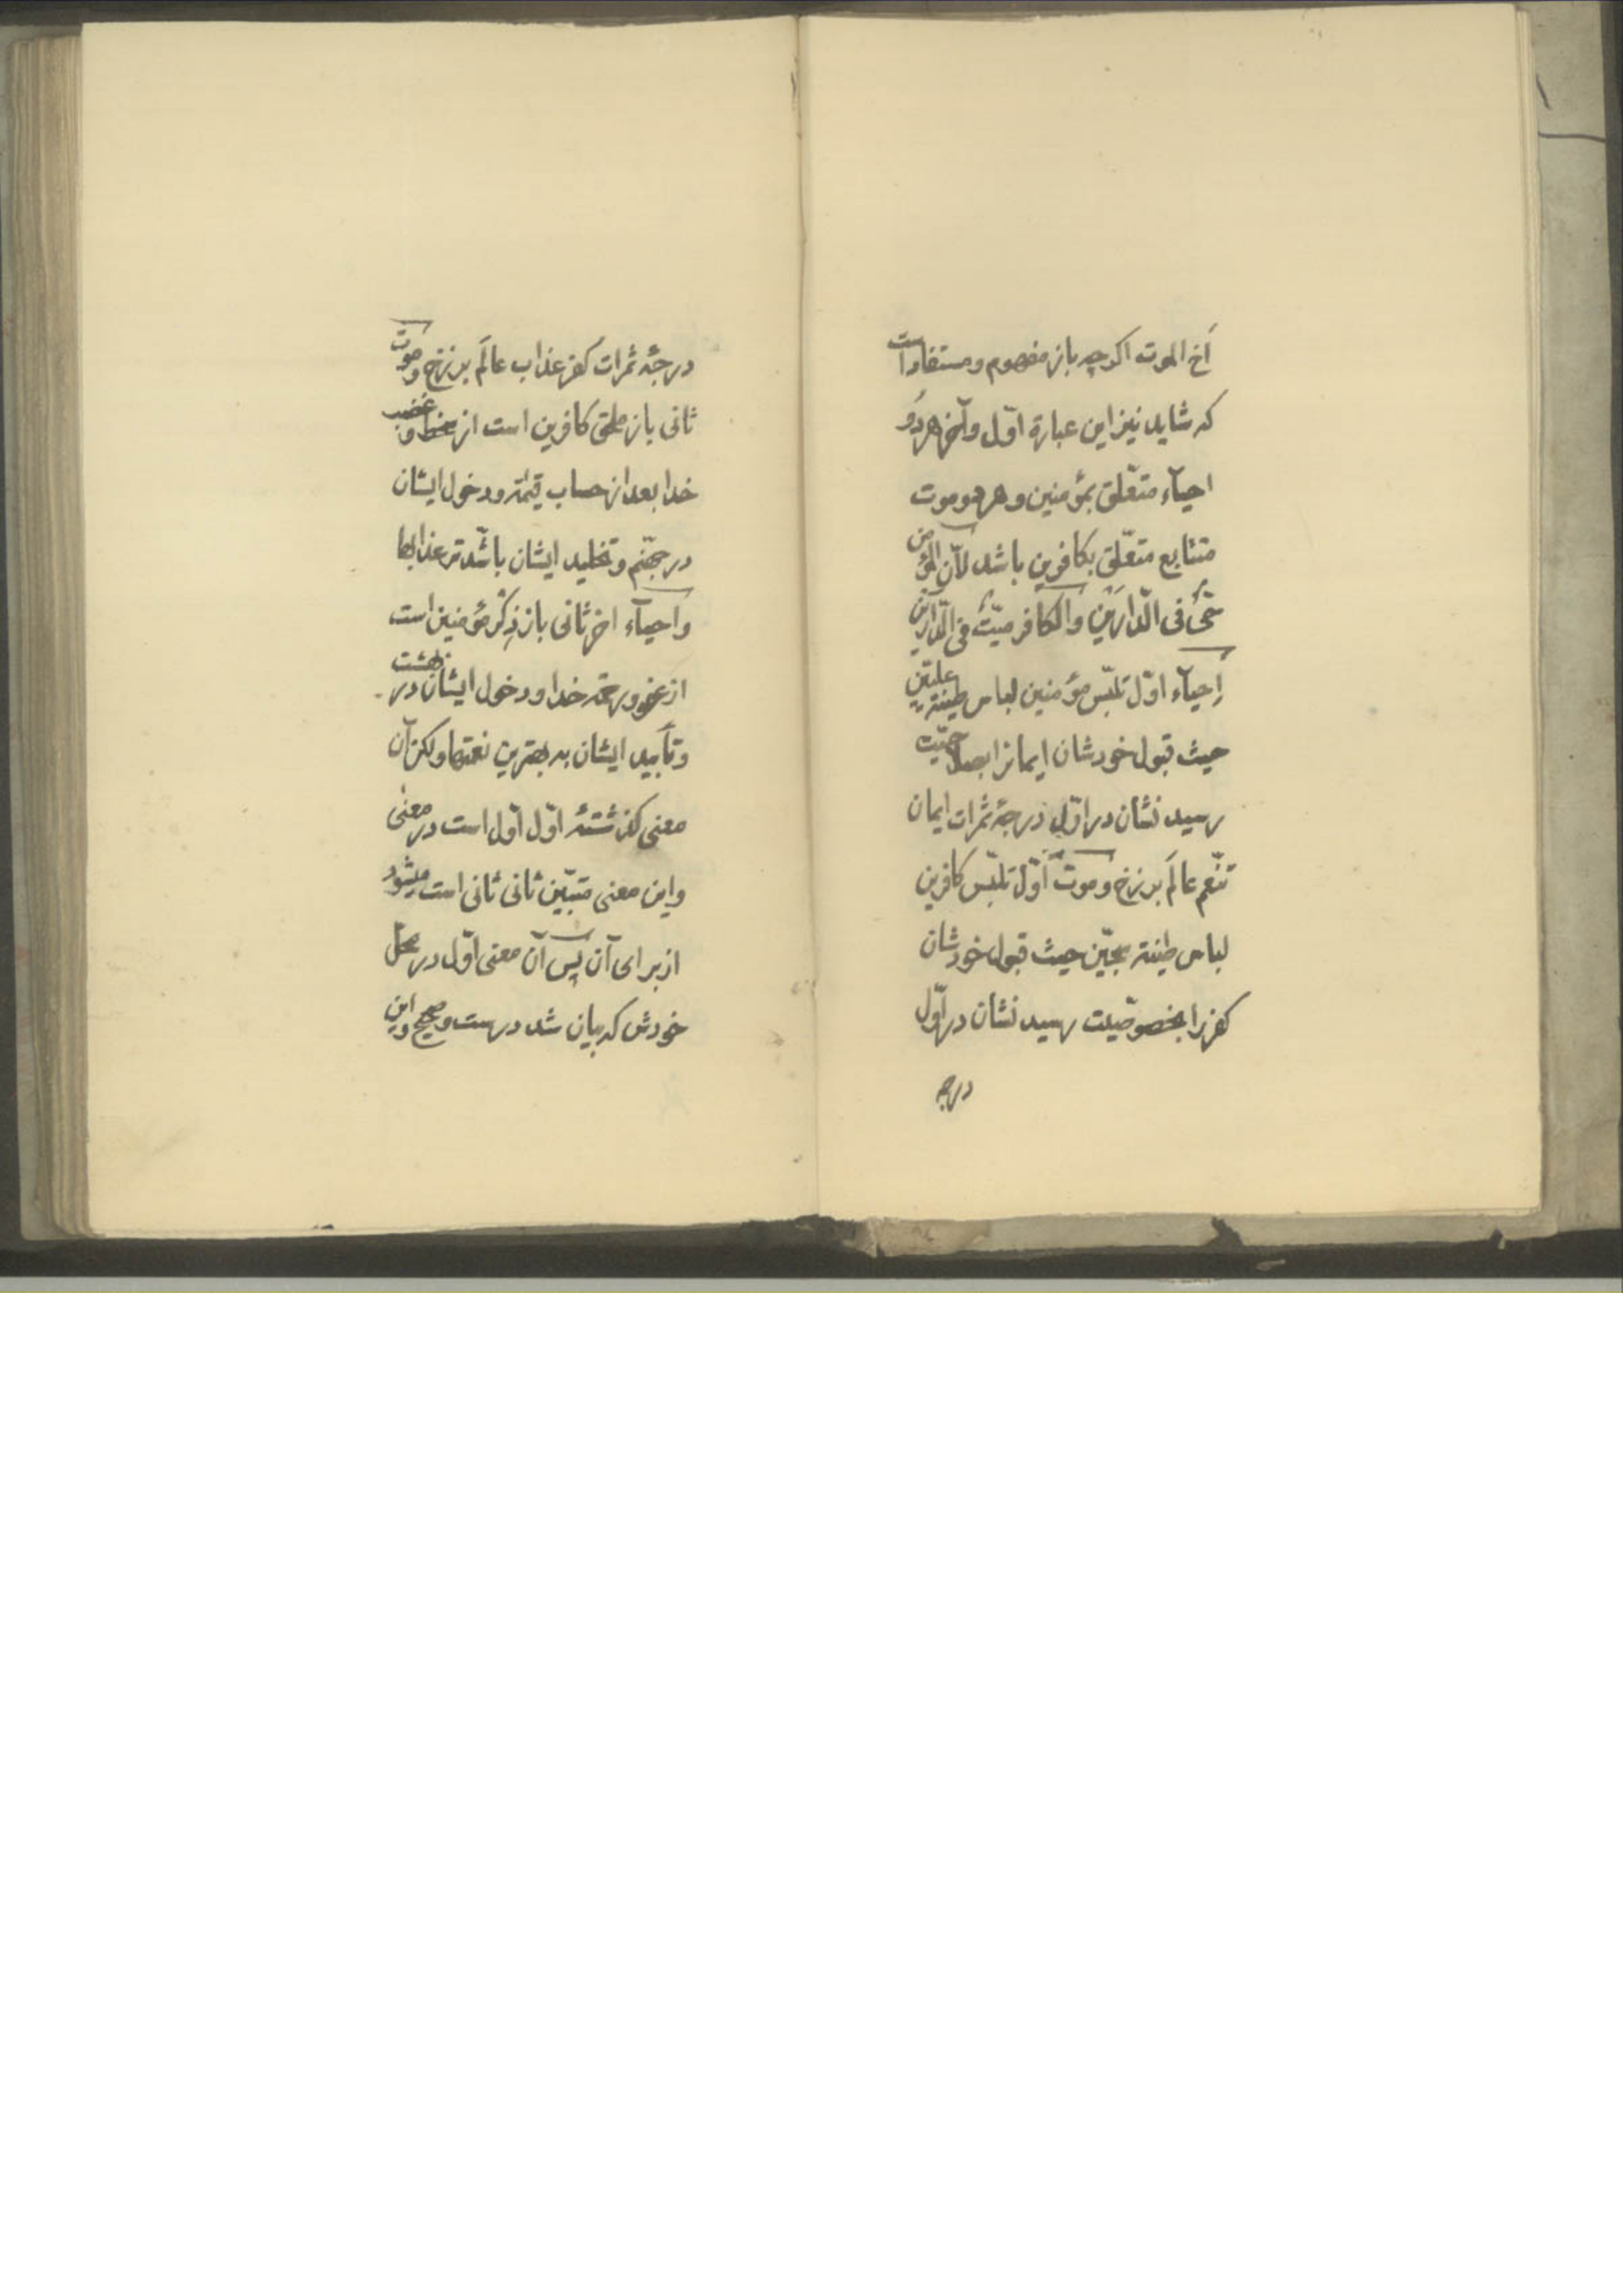 اَخ الموت اکرچه باز مفهوم و مستفاد است
که شاید نیز این عبارة اوّل و آخر هر دو
احیآء متعّلق بمؤمنین و هر دو موت
متتابع متعّلق بکافرین باشد لاَنّ المؤمن
حَیٌّ فی الدّارَیْنِ وَالکافر میّتٌ فی الدّارین
اِحیآء اوّل تلبّس مؤمنین لباس طینة علیّین
حیث قبول خودشان ایمانرا
رسید نشان در اوّل درجهٔ ثمرات ایمان
تنّعم عالَم برزخ و موت اوّل تلبّس کافرین
لباس طینة سجّین حیث قبول خودشان
کفر را بخصوصّیت رسید نشان در اوّل
درجه
درجهٔ ثمرات کفر عذاب عالَم برزخ و موت
ثانی باز ملقی کافرین است از سخط و غضب
خدا بعد از حساب قیمة و دخول ایشان
در جهّنم و تخلید ایشان باشّد تر عذابها
و احیآء اخر ثانی باز ذِکْر مؤمنین است
از عفو و رحمة خدا و دخول ایشان در بهشت
و تأبید ایشان به بهترین نعمتها ولکن آن
معنی کذشتهٔ اوّل اوّل است در معنی
و این معنی متبّین ثانی ثانی است میشود
از برای آن پس آن معنی اوّل در محلّ
خودش که بیان شد درست و صحیح و این